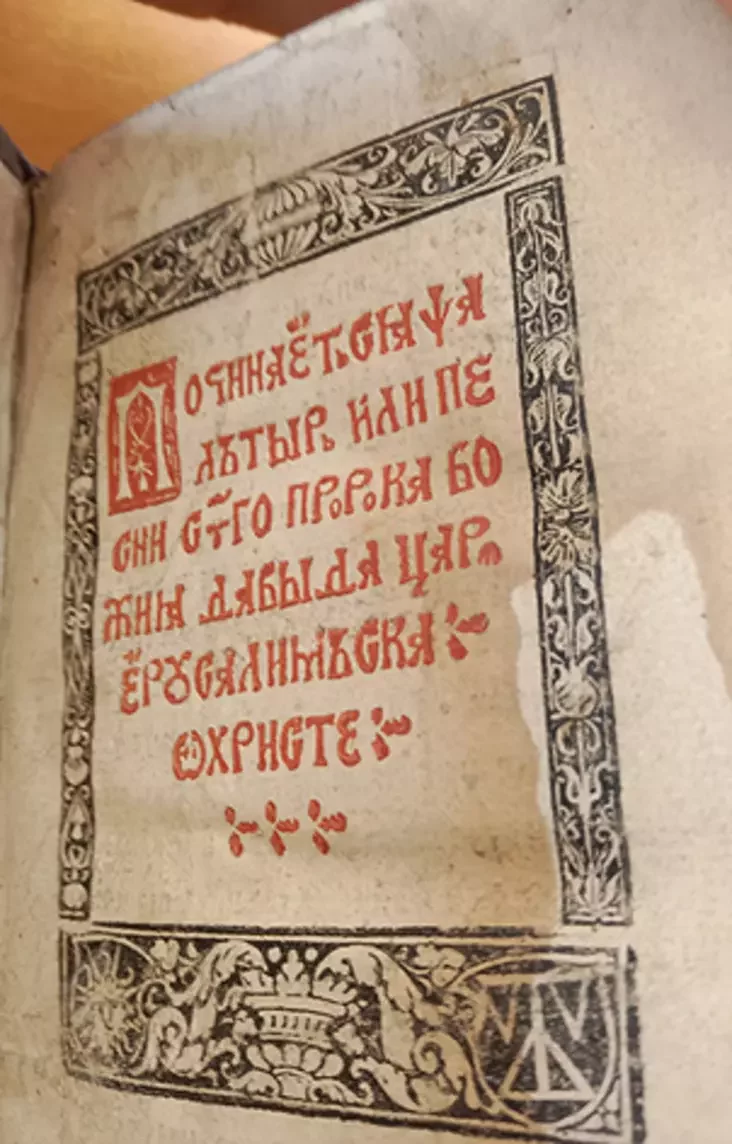 Починае́тсꙗ ѱа
лътырь или пе
сни ст҃го пророка бо
жиꙗ давыда царѧ
е́рꙋсалимъска
ѡ христе